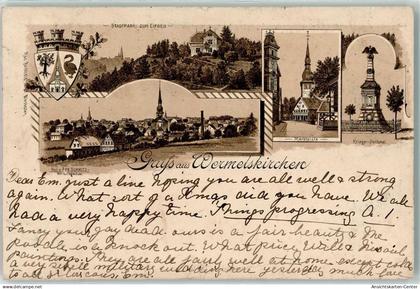 STADTPARK ZUM EIFGEN
MARKTPLATZ
Krieger-Denkmal
Gruß aus Wermelskirchen
Dear Em. just a line hoping you are all well & strong
again. What sort of a Xmas did you have. We all
had a very happy time. Things progressing A. 1.
Fancy your day dead. ours is a fair beauty & The
is a knock out. What price Wills &
paintings. They are all fairly well at home. except
a very military here yesterday much love
to all
www.ansichtskarten-center.de
Ansichtskarten-Center